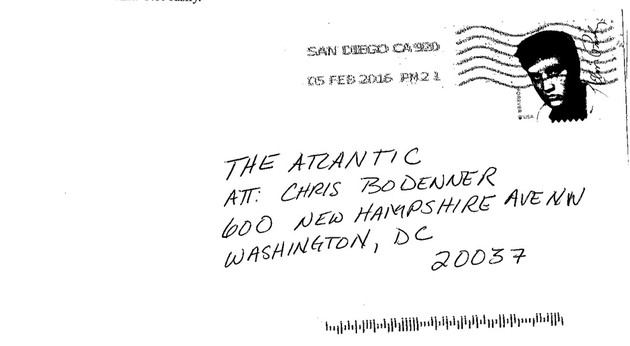 SAN DIEGO CA 920
05 FEB 2016 PM 2 L
FOREVER
USA
THE ATLANTIC
ATT: CHRIS BODENNER
600 NEW HAMPSHIRE AVE NW
WASHINGTON, DC
20037